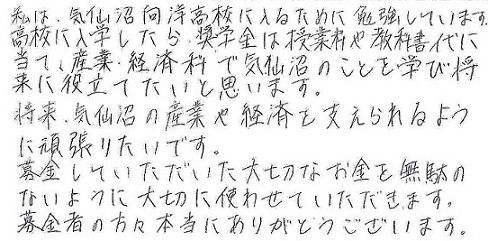 私は、気仙沼向洋高校に入るために勉強しています。
高校に入学したら、奨学金は授業料や教科書代に
当て、産業・経済科で気仙沼のことを学び将
来に役立てたいと思います。
将来、気仙沼の産業や経済を支えられるよう
に頑張りたいです。
募金していただいた大切なお金を無駄の
ないように大切に使わせていただきます。
募金者の方々本当にありがとうございます。